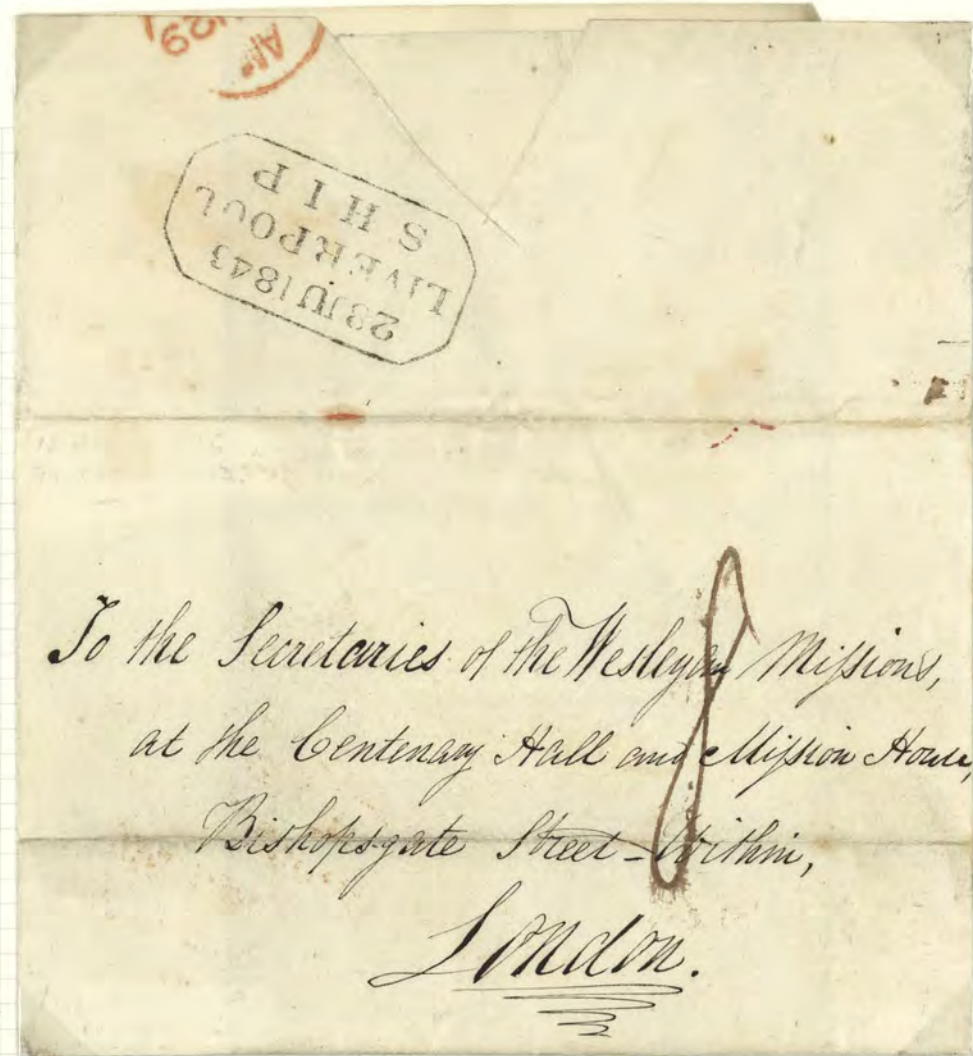 29
28JU1843
LIVERPOOL
SHIP
8
To the Secretaries of the Wesleyan Missions,
at the Centenary Hall and Mission House,
Bishopsgate Street - Within,
London.